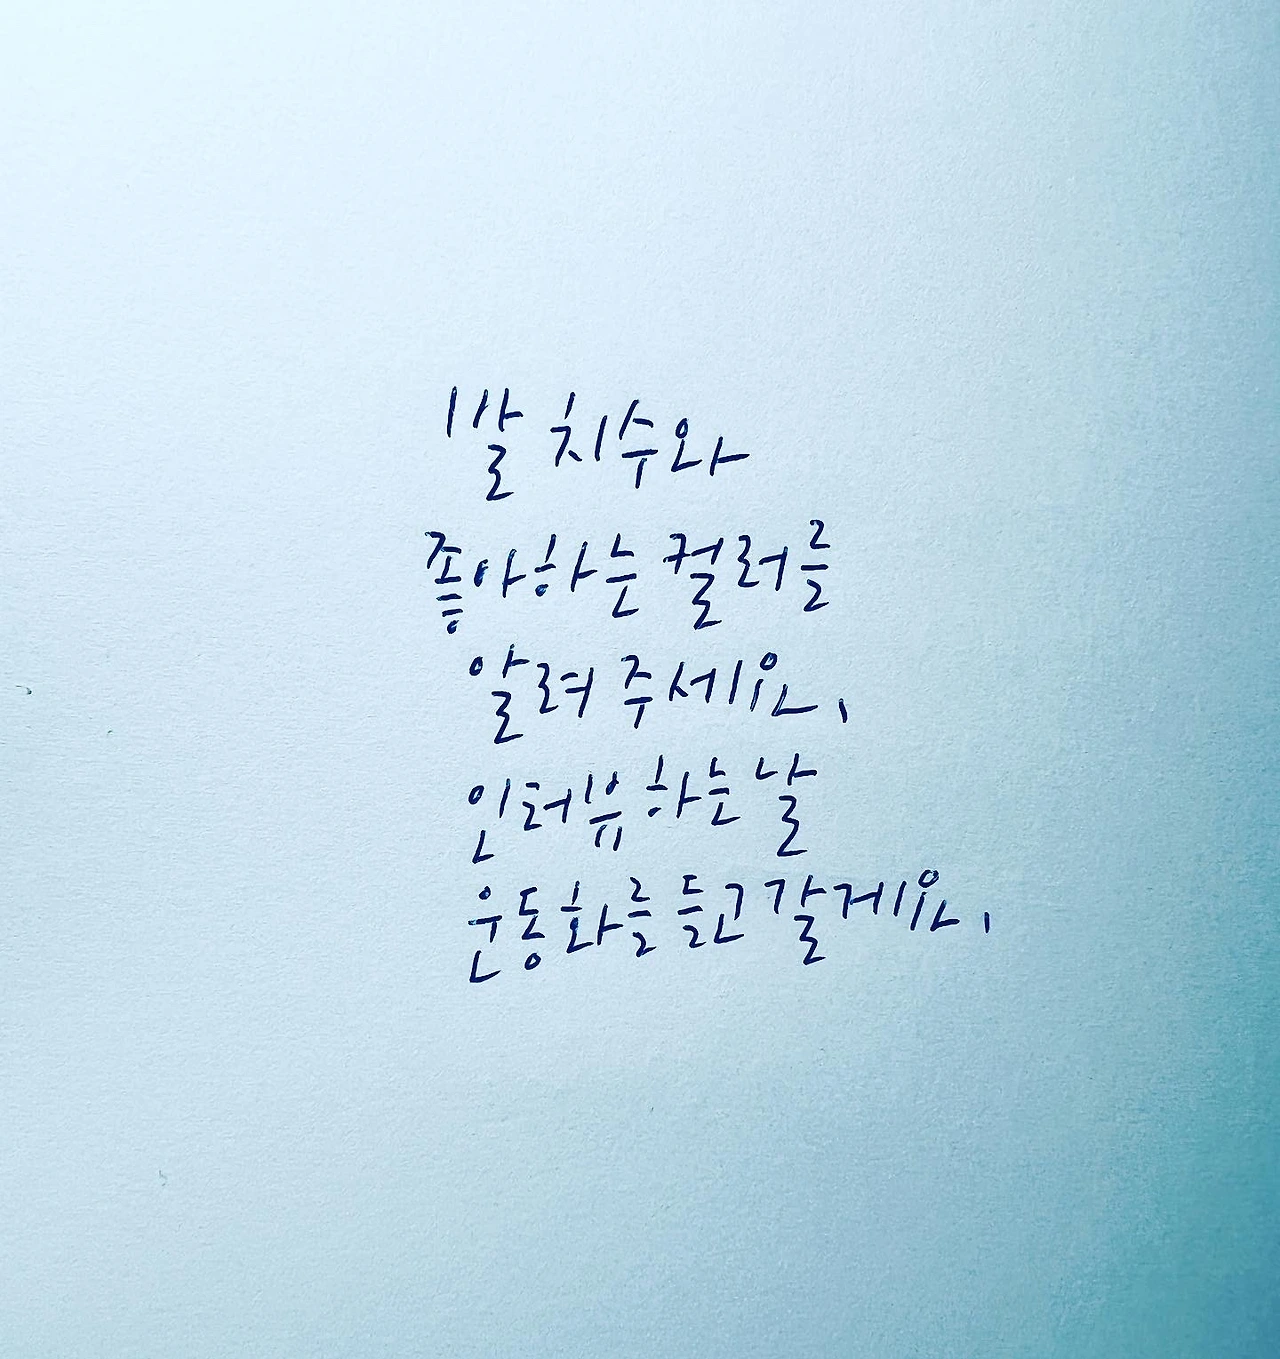 발 치수와
좋아하는 컬러를
알려 주세요.
인터뷰 하는 날
운동화를 들고 갈게요.